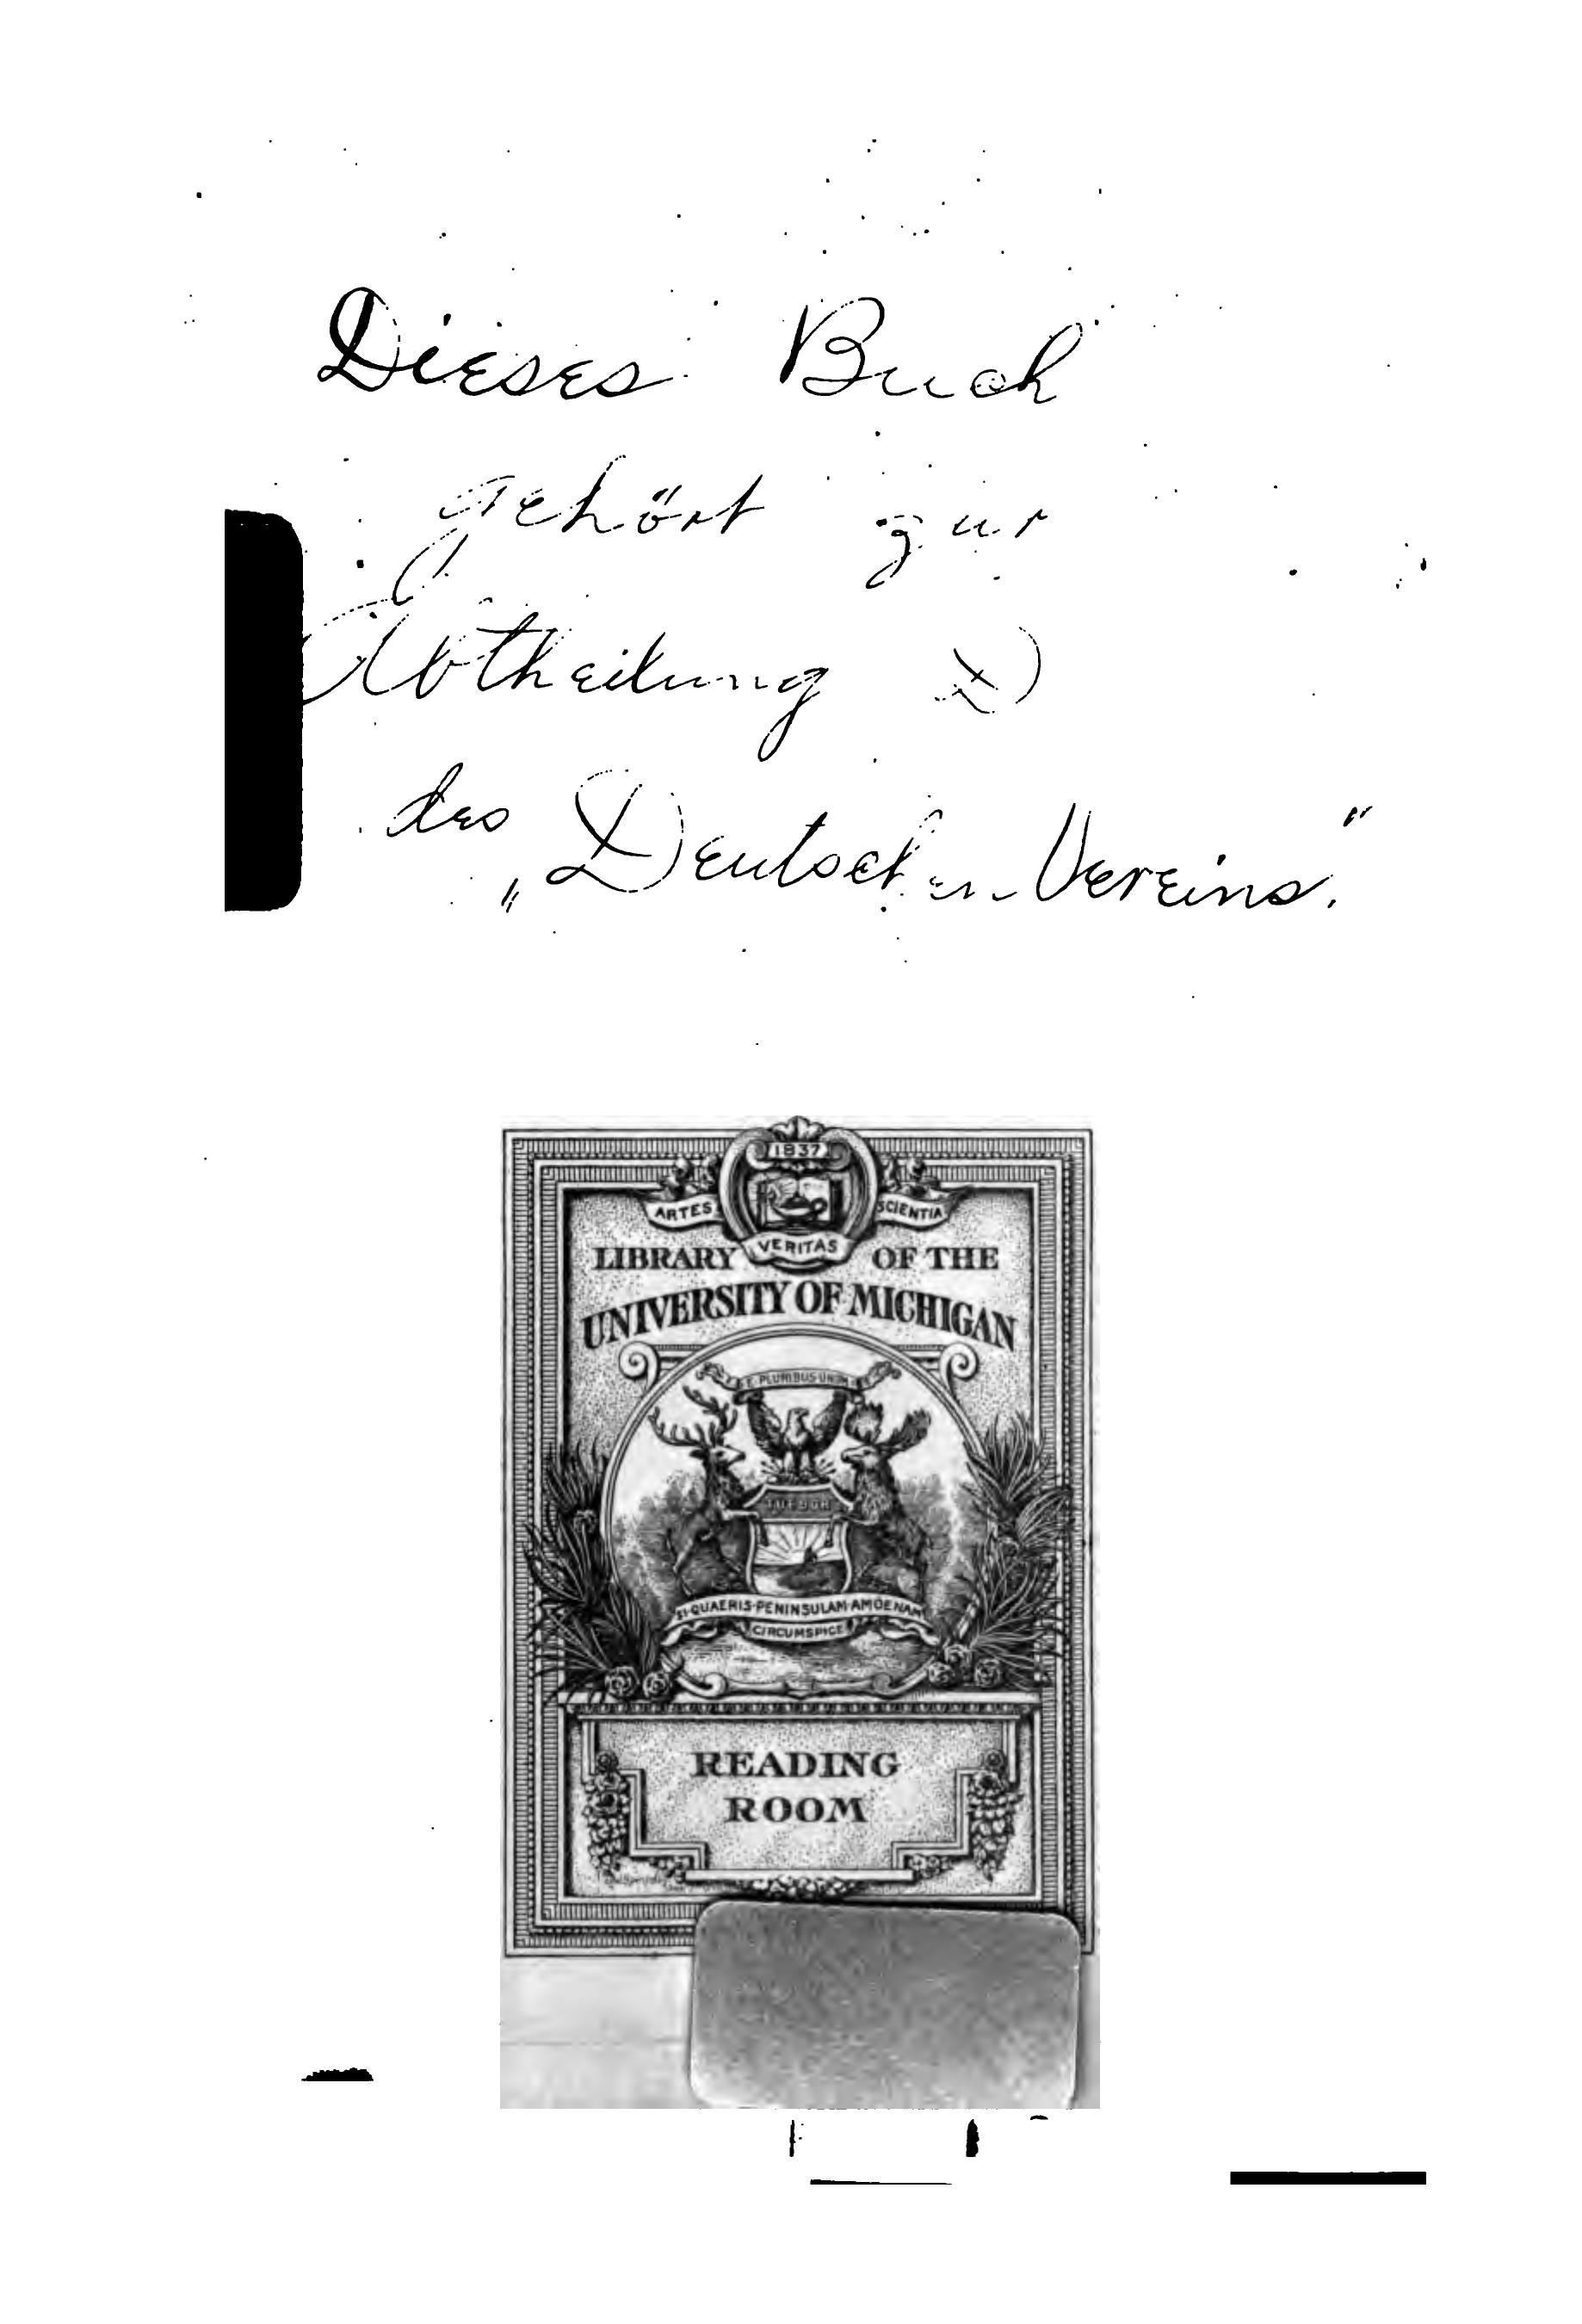 Dieses Buch
gehört zur
Abtheilung D
des
„Deutschen Vereins.“
1837
ARTES SCIENTIA
VERITAS
LIBRARY OF THE
UNIVERSITY OF MICHIGAN
E·PLURIBUS·UNUM
TUEBOR
SI·QUAERIS·PENINSULAM·AMOENAM
CIRCUMSPICE
READING
ROOM